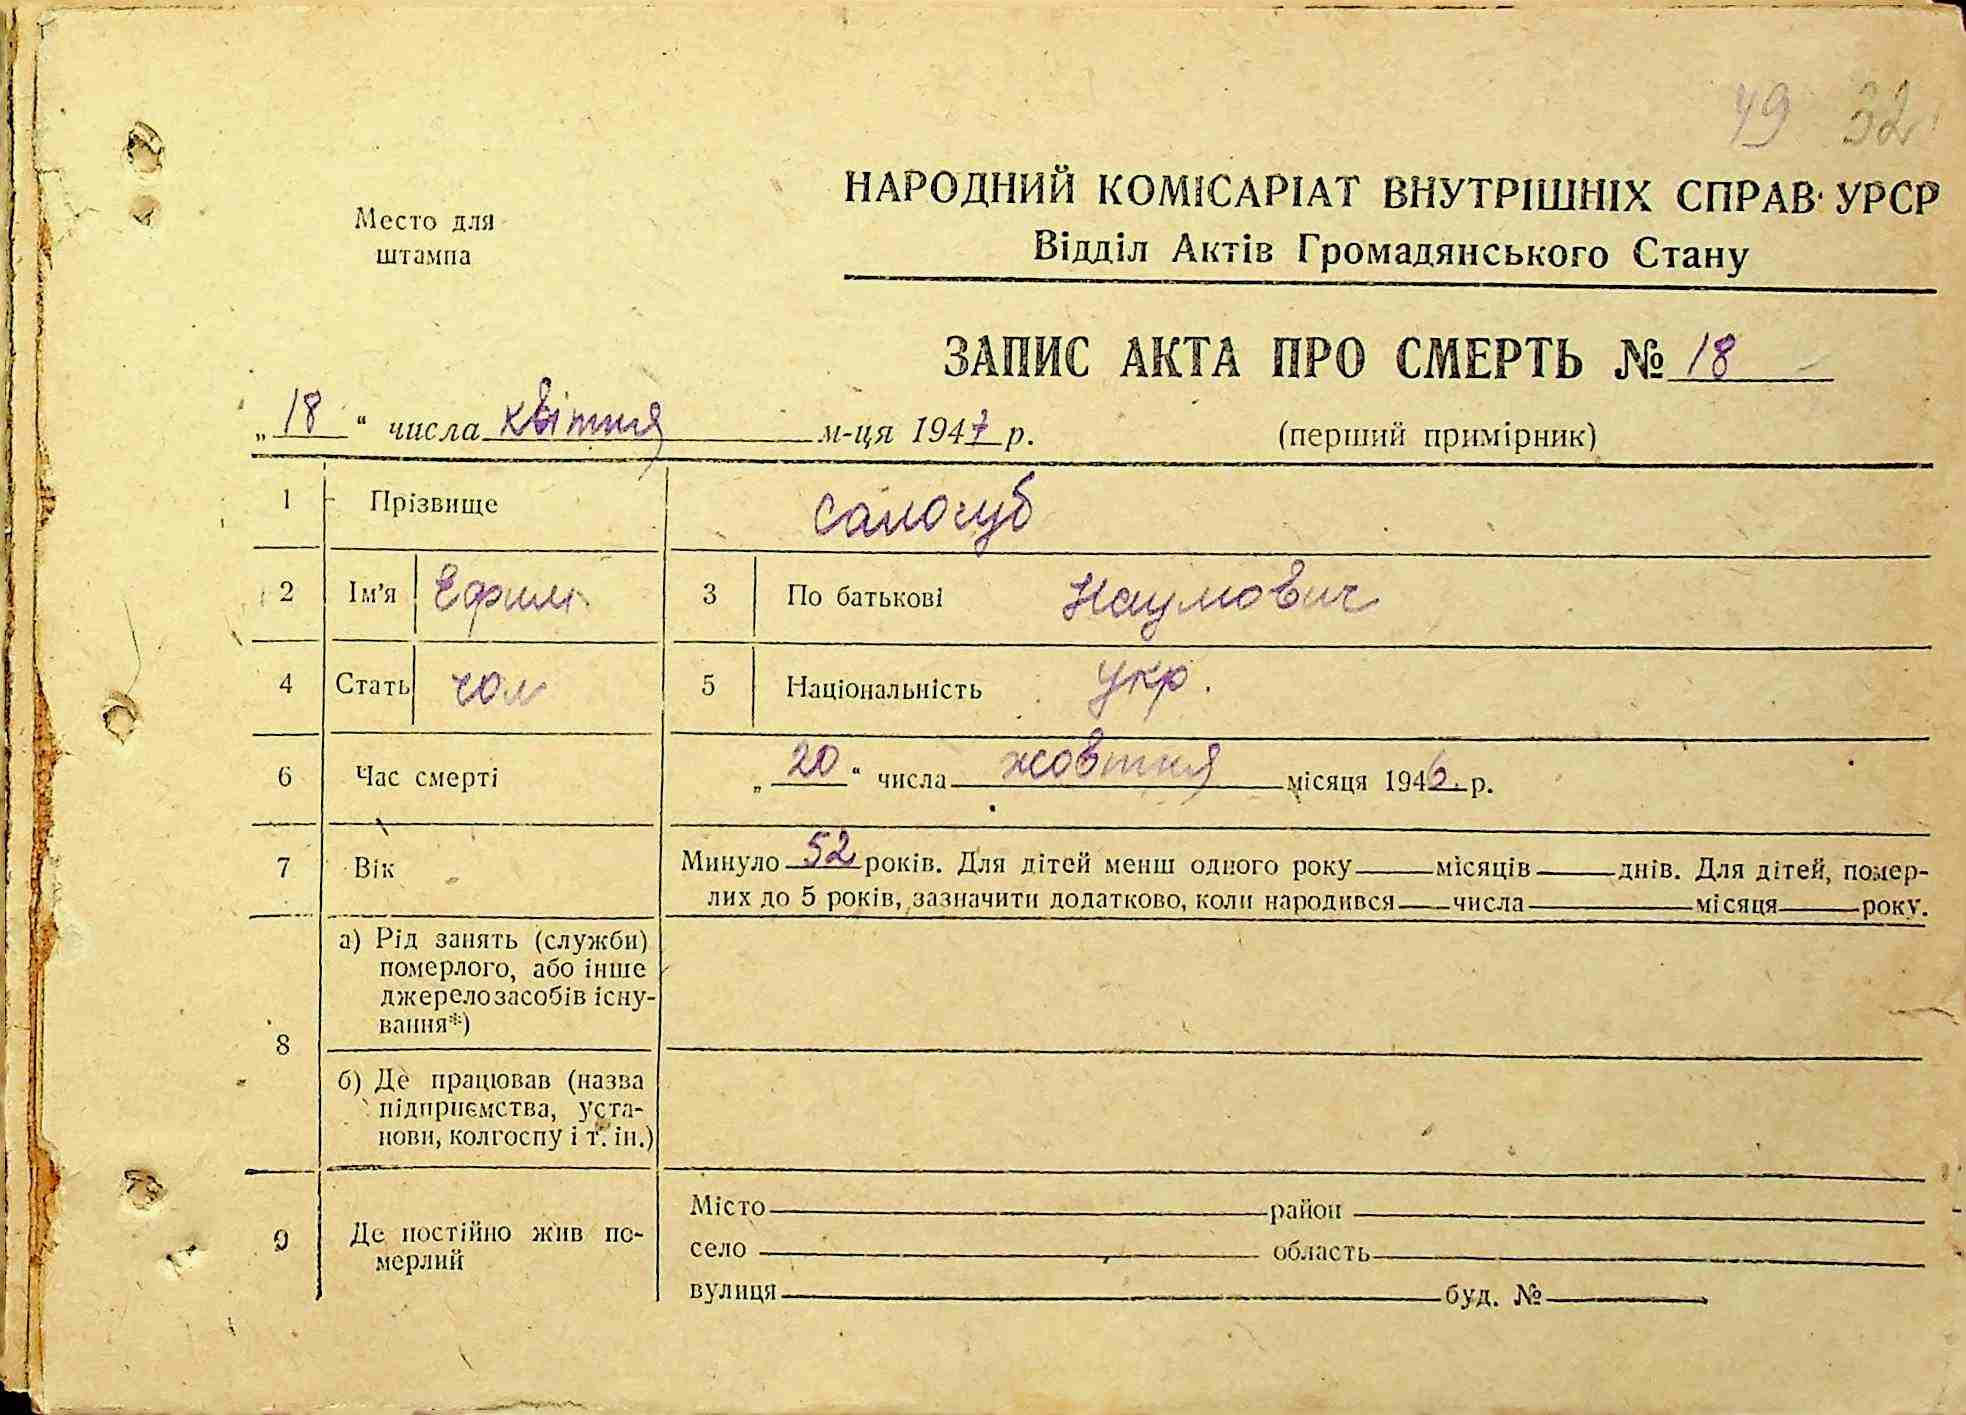 49 32
Место для
штампа
НАРОДНИЙ КОМІСАРІАТ ВНУТРІШНІХ СПРАВ УРСР
Відділ Актів Громадянського Стану
ЗАПИС АКТА ПРО СМЕРТЬ № 18
„18“ числа квітня м-ця 1947 р. (перший примірник)
1 Прізвище Салогуб
2 Ім'я Ефим 3 По батькові Наумович
4 Стать чол 5 Національність укр.
6 Час смерті „20“ числа жовтня місяця 1946 р.
7 Вік Минуло 52 років. Для дітей менш одного року місяців днів. Для дітей, помер-
лих до 5 років, зазначити додатково, коли народився числа місяця року.
8 а) Рід занять (служби)
померлого, або інше
джерело засобів існу-
вання*)
б) Де працював (назва
підприємства, уста-
нови, колгоспу і т. ін.)
9 Де постійно жив по-
мерлий
Місто район
село область
вулиця буд. №